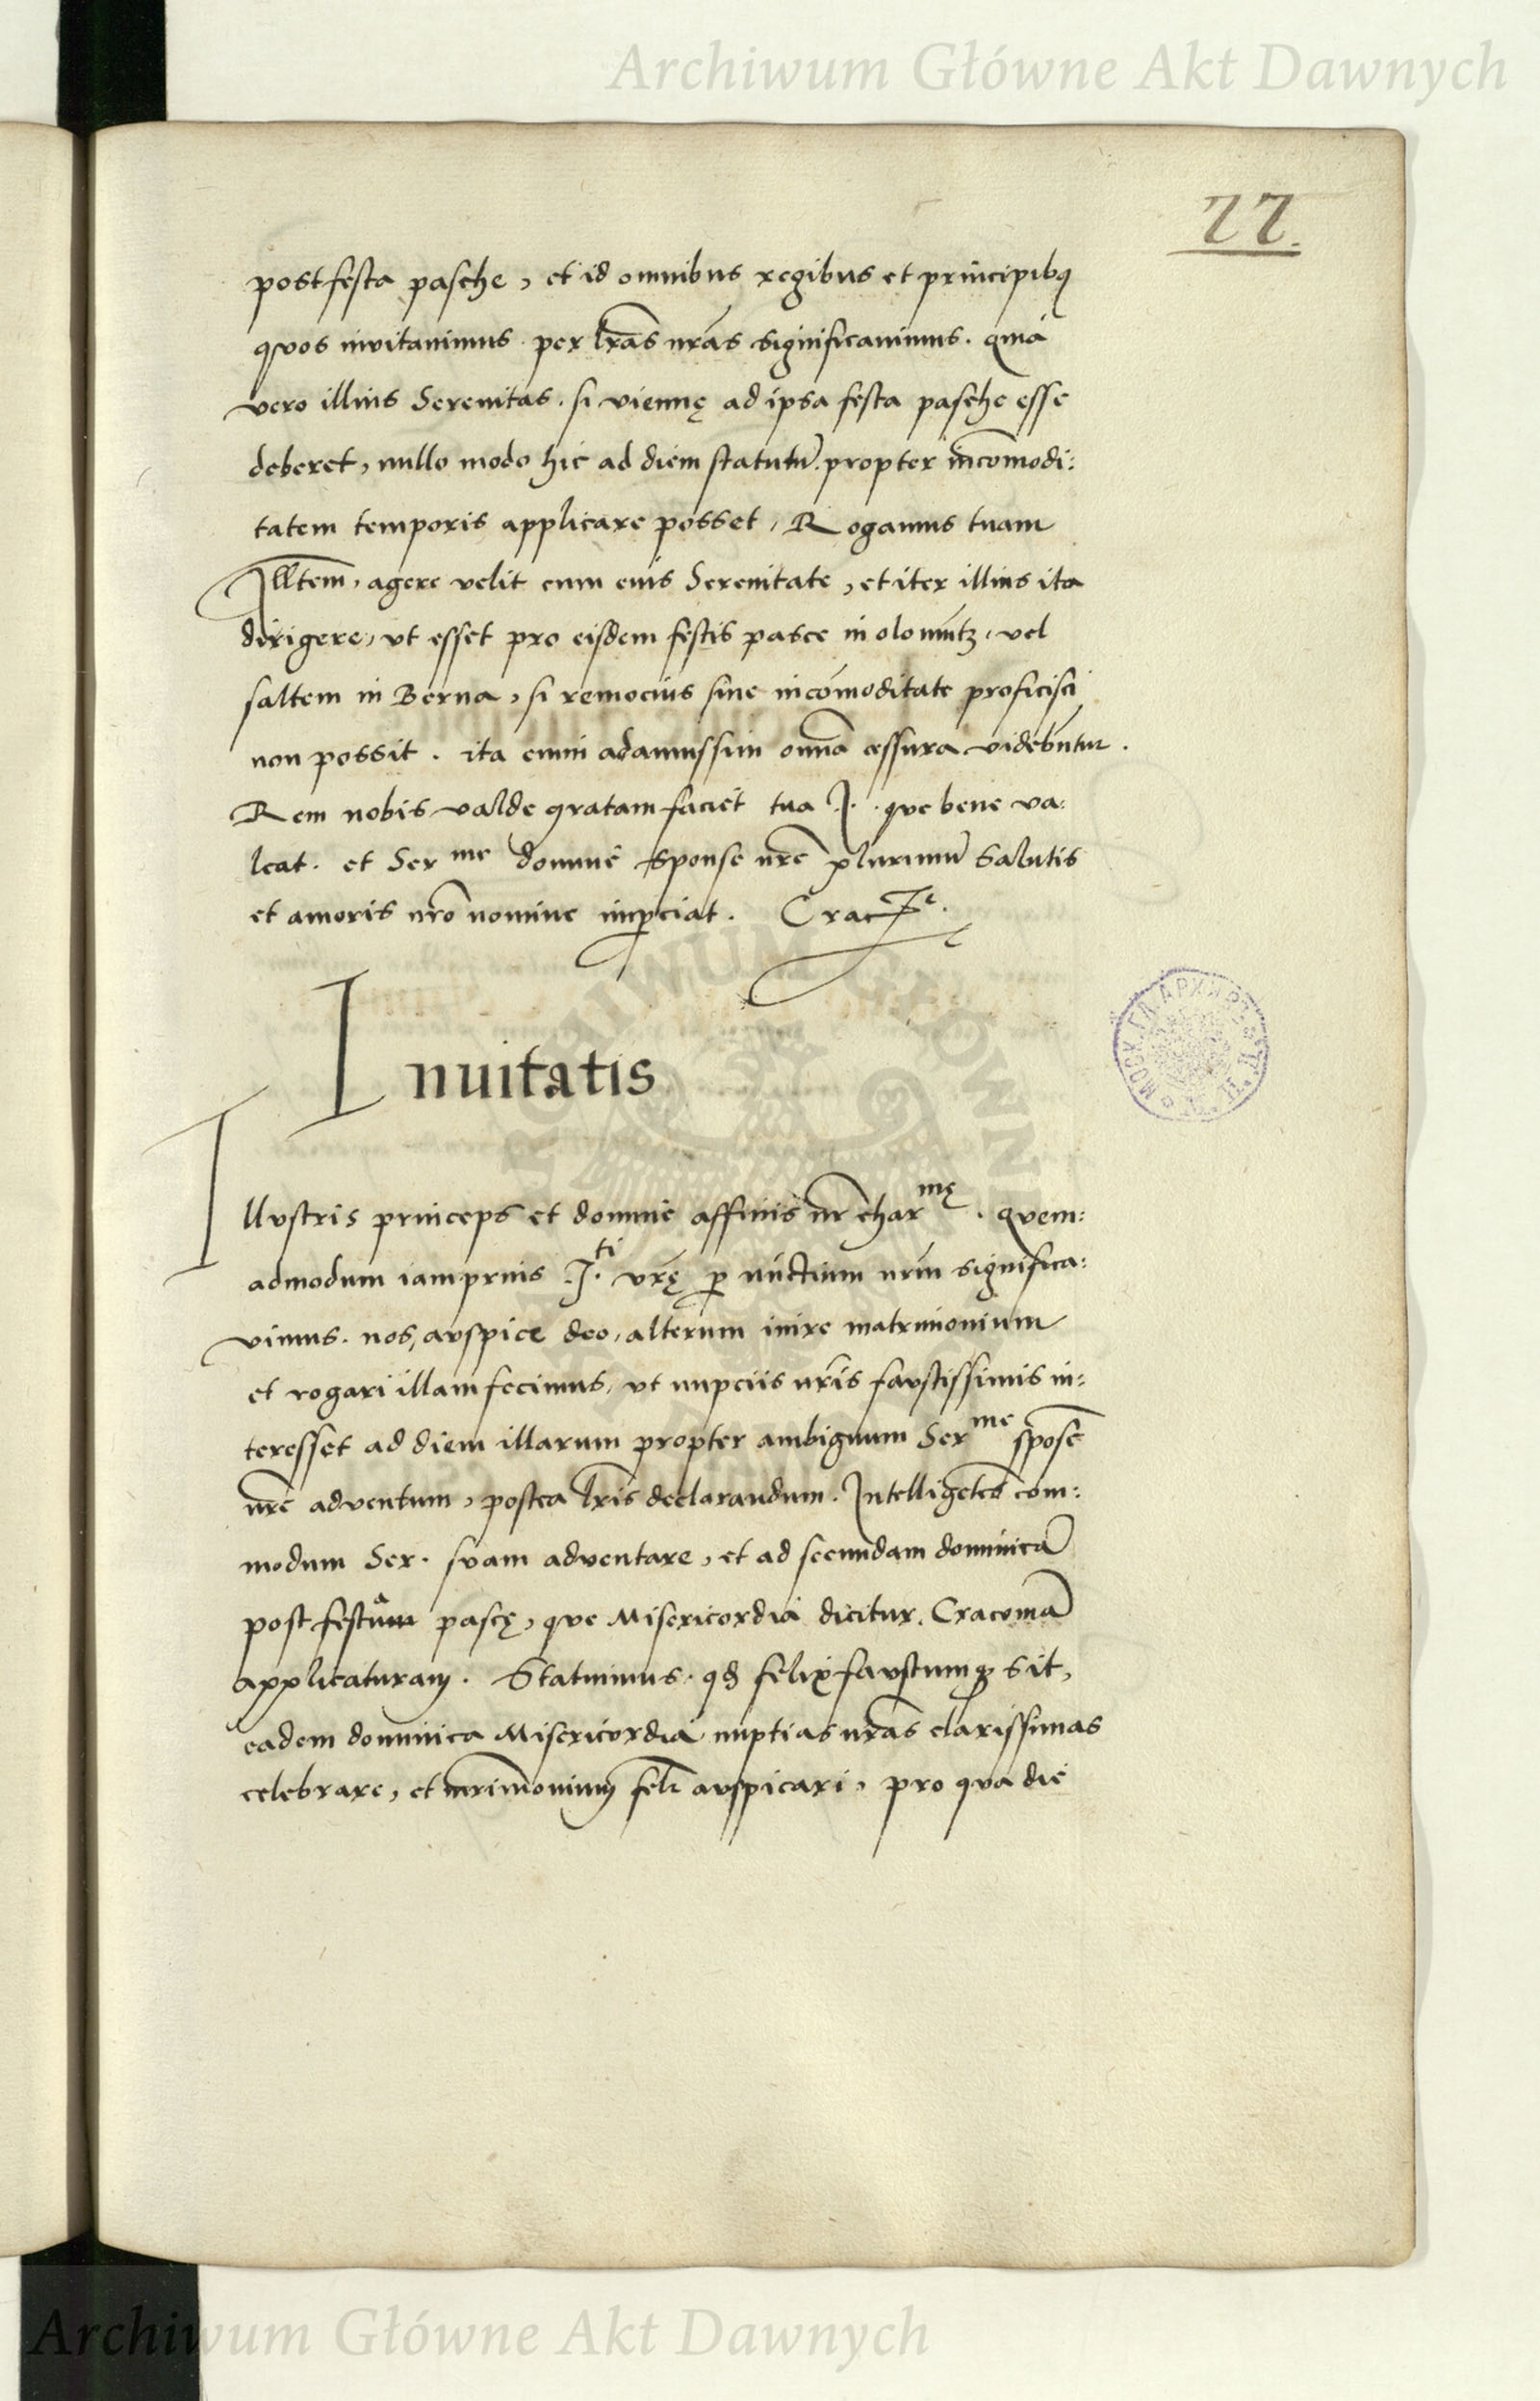 Archiwum Główne Akt Dawnych
22.
post festa pasche, et id omnibus regibus et principibq
quos invitauimus per lr̃as nr̃as significauimus. quia
vero illius Serenitas. si viennę ad ipsa festa pasche esse
deberet, nullo modo hic ad diem statutũ. propter incõmodi:
tatem temporis applicare posset, Rogamus tuam
Illtem̃, agere velit cum eius Serenitate, et iter illius ita
dirigere, vt esset pro eisdem festis pasce in olomũtz, vel
saltem in Berna, si remocius sine incõmoditate proficisci
non possit. ita enim adamussim omñia cessura videbũtur.
Rem nobis valde gratam faciet tua I. que bene va:
leat. et Ser me domine sponse nr̃e plurimũ Salutis
et amoris nr̃o nomine imꝑciat. Crac
Inuitatis
Illvstris princeps et domine affinis nr̃ char mę. quem:
admodum iamprius I. ti vr̃ę ꝑ nũctium nr̃m significa:
vimus. nos, avspice deo, alterum inire matrimonium
et rogari illam fecimus, vt nupciis nr̃is favstissimis in:
teresset ad diem illarum propter ambiguum Ser me spõse
nr̃e adventum, postea lr̃is declarandum. Intelligẽtes com:
modum Ser. svam adventare, et ad secundam dominicã
post festum pascę, que Misericordia dicitur. Cracouiã
applicaturam. Statuimus. qđ felix favstumqȝ sit,
eadem dominica Misericordia nuptias nr̃as clarissimas
celebrare, et mr̃imonium fel̃r avspicari, pro qva die
Archiwum Główne Akt Dawnych